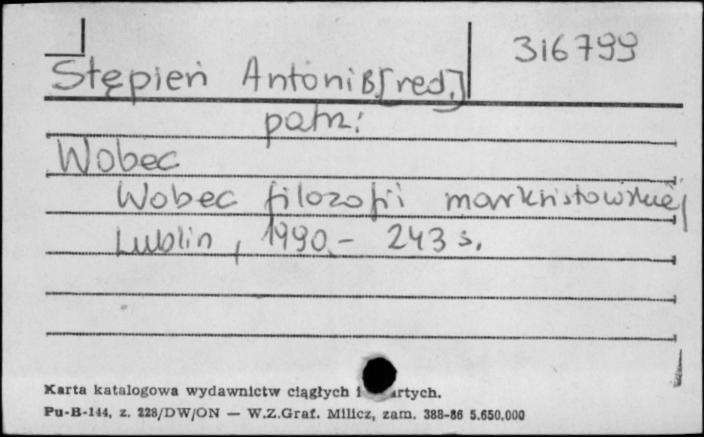 316799
Stępień Antoni B. [red.]
patrz:
Wobec
Wobec filozofii marksistowskiej
Lublin, 1990.- 243 s.
Karta katalogowa wydawnictw ciągłych i
Pu-B-144, z. 228/DW/ON — W.Z.Graf. Milicz, zam. 388-86 5.650.000